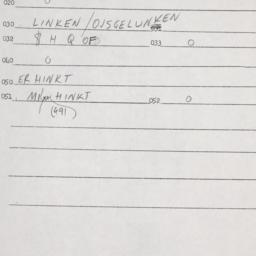 020 0
030 LINKEN / OJSGELUNKEN
032 $ H Q OF 033 0
040 0
050 ER HINKT
051 HINKT 052 0
(491)